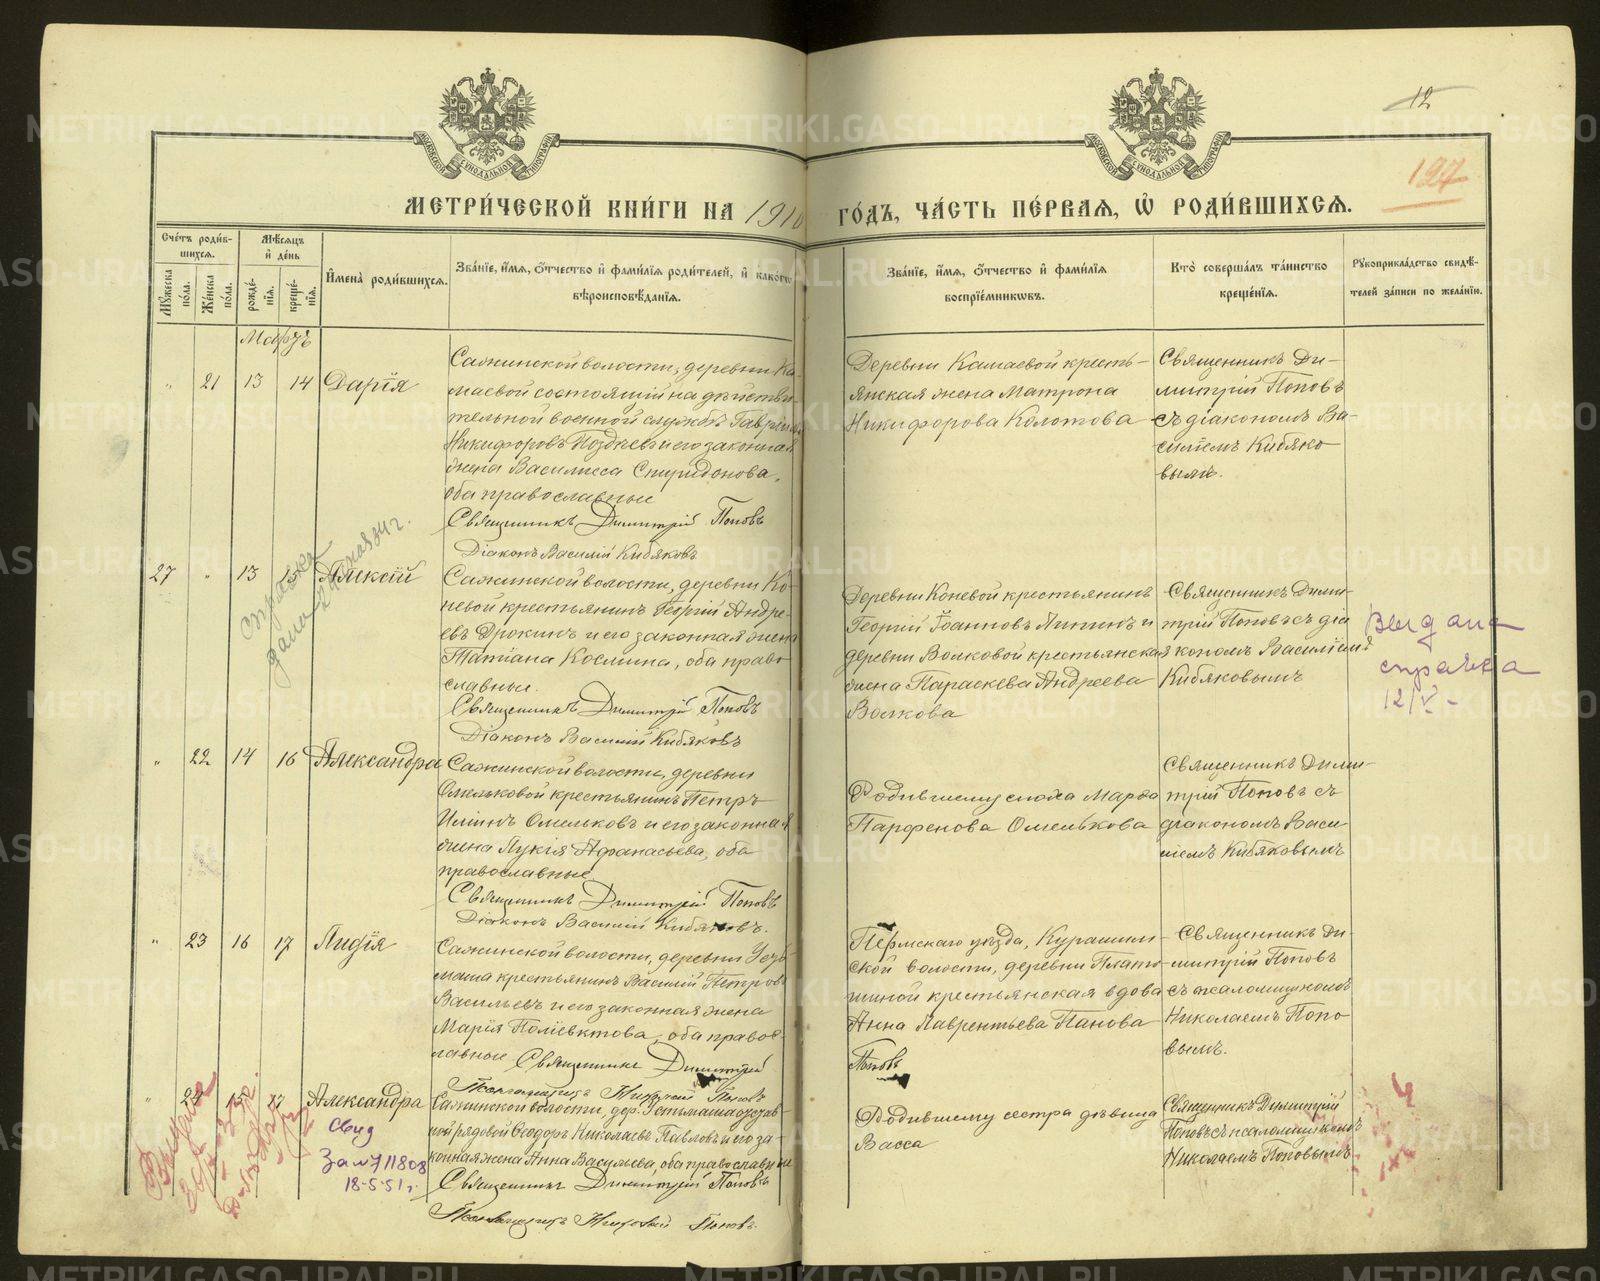 12
127
МЕТРИ́ЧЕСКОЙ КНИ́ГИ НА 1910 ГО́ДЪ, ЧА́СТЬ ПЕ́РВАЯ, Ѡ҆ РОДИ́ВШИХСЯ.
Сче́тъ роди́в-
шихся.
Му́жеска по́ла.
Же́нска по́ла.
Мѣ́сяцъ
и҆ де́нь
рожде́-
нїя.
креще́-
нїя.
И҆мена̀ роди́вшихся.
Зва́нїе, и҆́мя, ѻ҆́тчество и҆ фами́лїя роди́телей, и҆ како́гѡ
вѣроисповѣ́данїя.
Зва́нїе, и҆́мя, ѻ҆́тчество и҆ фами́лїя
воспрїе́мникѡвъ.
Кто̀ соверша́лъ та́инство
креще́нїя.
Рꙋкоприкла́дство свидѣ́-
телей за́писи по жела́нїю.
Мартъ
" 21 13 14 Дарія
Сажинской волости, деревни Ка-
маевой состоящій на дѣйстви-
тельной военной службѣ Гавріилъ
Никифоровъ Позднеев и его законная
жена Василисса Спиридонова,
оба православные
Священникъ Димитрій Поповъ
Діаконъ Василій Кибяковъ
Деревни Камаевой кресть-
янская жена Матрона
Никифорова Колотова
Священникъ Ди-
митрій Поповъ
съ діакономъ Ва-
силіемъ Кибяко
вымъ.
27 " 13 Алексій
справка
дана
Сажинской волости, деревни Ко-
невой крестьянинъ Георгій Андре-
евъ Дрокинъ и его законная жена
Татіана Космина, оба право
славные.
Священникъ Димитрій Поповъ
Діаконъ Василій Кибяковъ
Деревни Коневой крестьянинъ
Георгій Іоанновъ и
деревни Волковой крестьянская
жена Параскева Андреева
Волкова
Священникъ Дими-
трій Поповъ съ діа
кономъ Василіемъ
Кибяковымъ
Выдана
справка
12/V-
" 22 14 16 Александра
Сажинской волости, деревни
Омельковой крестьянинъ Петръ
Илiинъ Омельковъ и его законная
жена Лукія Афанасьева, оба
православные
Священникъ Димитрій Поповъ
Діаконъ Василій Кибяковъ.
Родившему сноха Марѳа
Парфенова Омелькова
Священникъ Дими-
трій Поповъ съ
діакономъ Васи
ліемъ Кибяковымъ
" 23 16 17 Лидія
Сажинской волости, деревни
маша крестьянинъ Василій Петровъ
Васильевъ и его законная жена
Марія Поліевктова, оба правос-
лавные Священникъ Димитрій
Поповъ
Псаломщикъ Николай Поповъ
Пермскаго уѣзда, Курашим-
ской волости, деревни Плато-
шиной крестьянская вдова
Анна Лаврентьева Панова
Священникъ Ди-
митрій Поповъ
съ псаломщикомъ
Николаемъ Попо
вымъ.
" 24 15 17 Александра
Сажинской волости, дер.
рядовой Ѳеодоръ Николаевъ Павловъ и его за-
конная жена Анна Васильева, оба православные
Священникъ Димитрій Поповъ
Псаломщикъ Николай Поповъ.
Родившему сестра дѣвица
Васса
Священникъ Димитрій
Поповъ съ псаломщикомъ
Николаемъ Поповымъ
Свид
За № 711808
18-5-51 г.
Выдана